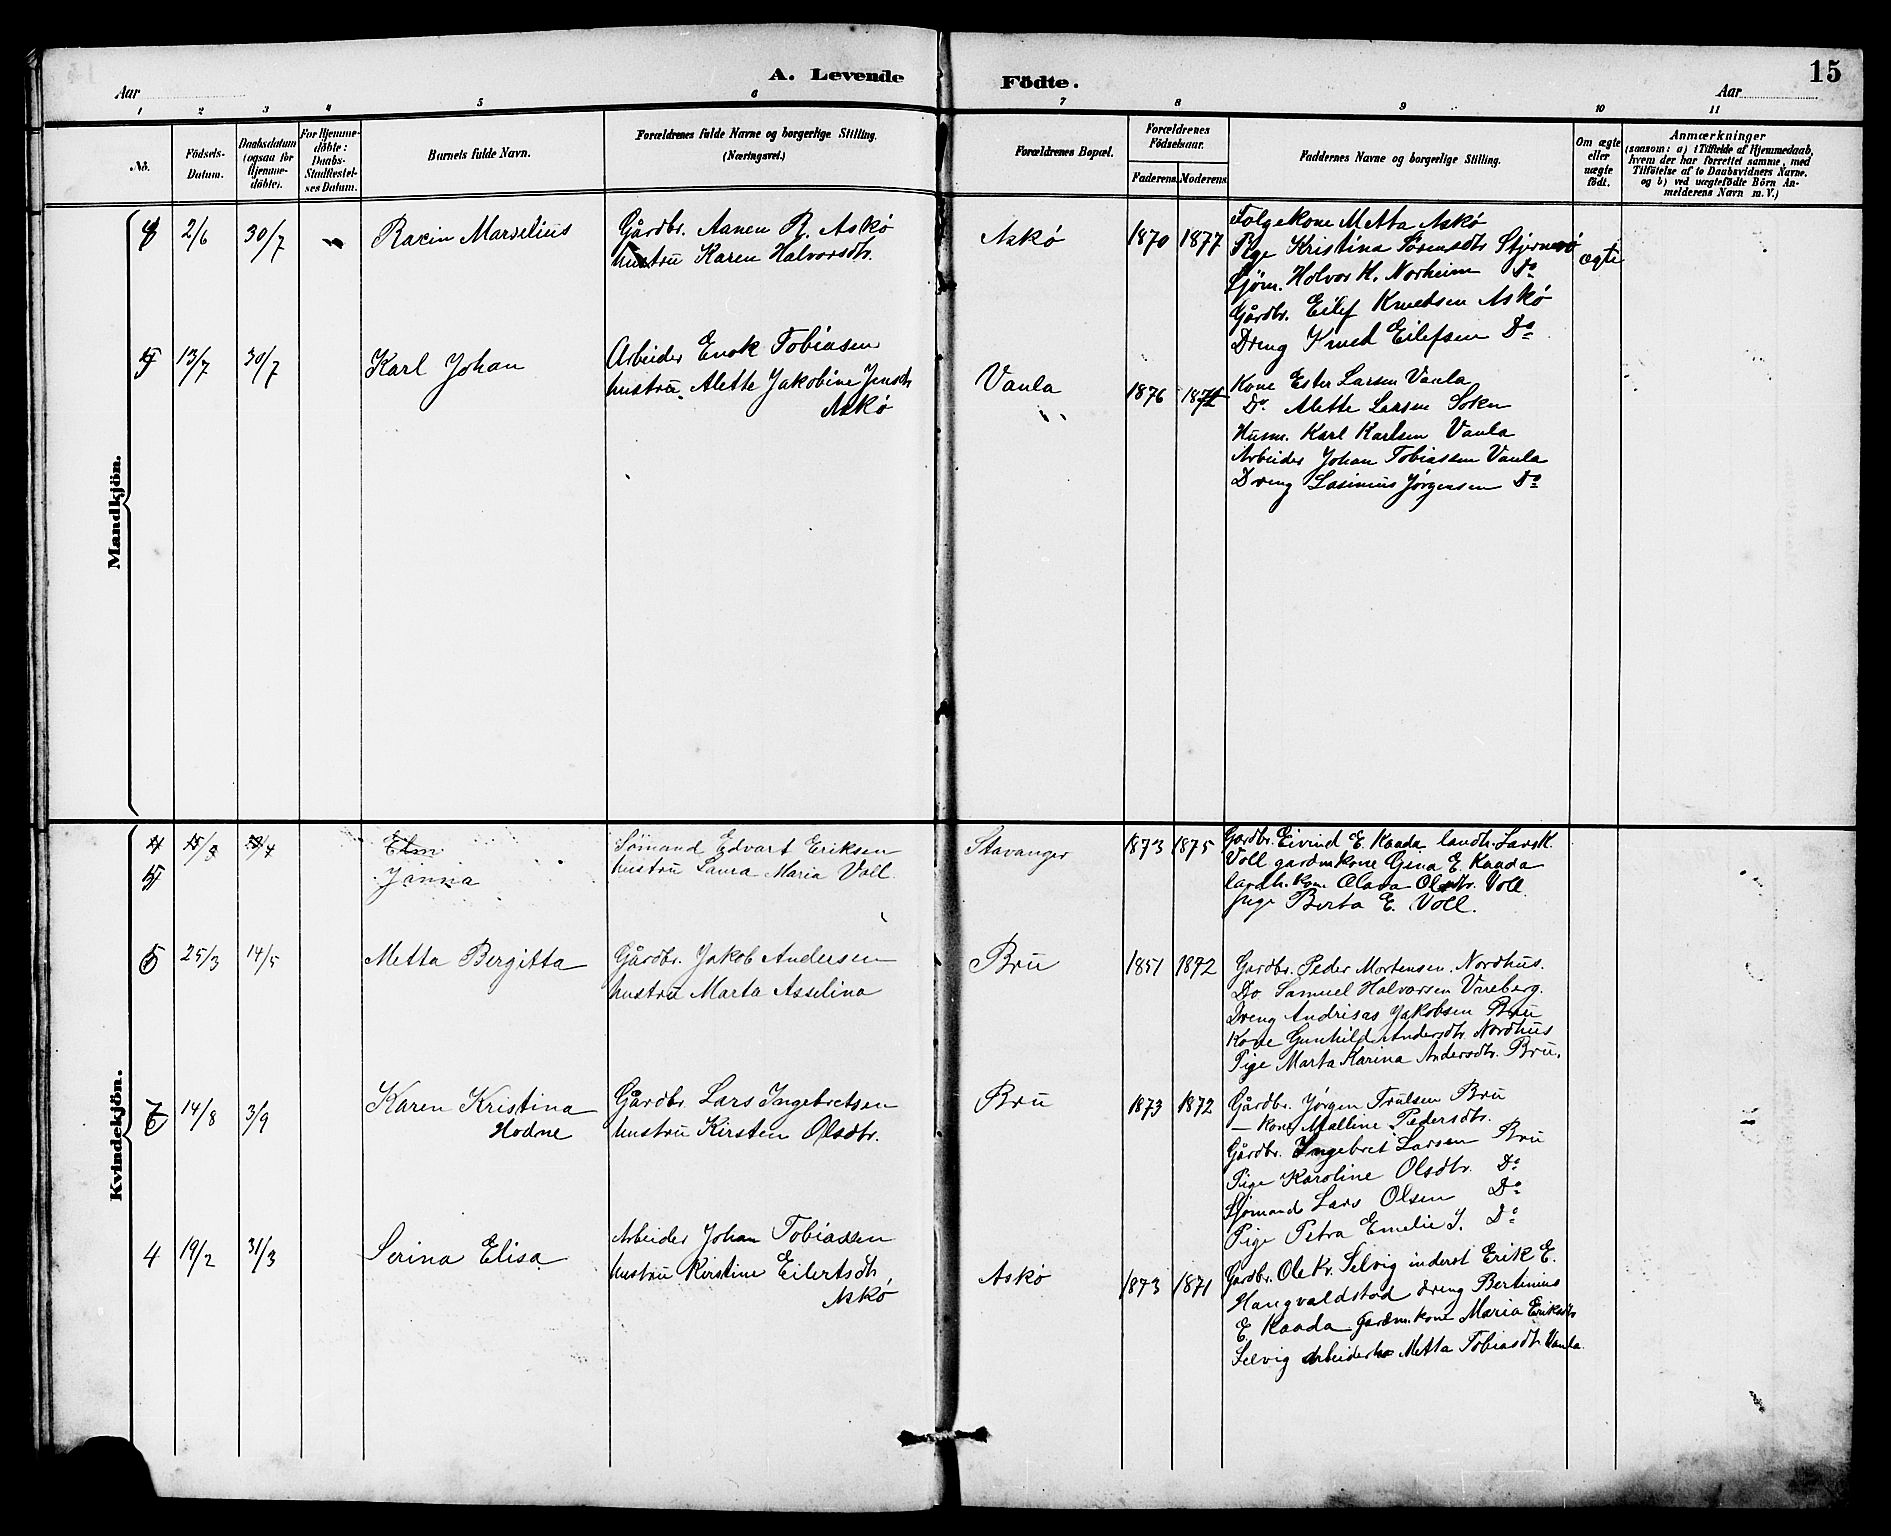 A. Levende Fødte.
15
Aar
Aar
1 2 3 4 5 6 7 8 9 10 11
No.
Födsels-Datum.
Daabsdatum (ogsaa for Hjemmedöbte).
For Hjemmedöbte: Daabs-Stadfæstelses Datum.
Barnets fulde Navn.
Forældrenes fulde Navne og borgerlige Stilling. (Næringsvei.)
Forældrenes Bopæl.
Forældrenes Födselsaar.
Faderens. Moderens.
Faddernes Navne og borgerlige Stilling.
Om ægte eller uægte födt.
Anmærkninger
(saasom: a) i Tilfælde af Hjemmedaab, hvem der har forrettet samme, med Tilföielse af to Daabsvidners Navne. og b) ved uægtefödte Börn Anmelderens Navn m. V.)
Mandkjön.
2/6 30/7 Racin Marselius
Gårdbr. Aanen R. Askø
hustru Karen Halvorsdtr.
Askø 1870 1877
Folgekone Metta Askø
Pige Kristina Sørensdtr Stjernerø
Sjøm. Holvor H. Norheim Do
Gårdbr. Eilef Knudsen Askø
Dreng Knud Eilefsen Do
ægte
13/7 30/7 Karl Johan
Arbeider Enok Tobiasen
hustru Alette Jakobine Jensdtr
Askø
Vaula 1876
Kone Ester Larsen Vaula
Do. Alette Larsen Soken
Husm. Karl Karlsen Vaula
Arbeider Johan Tobiassen Vaula
Dreng Lasimius Jørgensen Do
Kvindekjön.
Janna
Sømand Edvart Eriksen
hustru Laura Maria Voll
Stavanger 1873 1875
Gardbr. Eivind E. Kaada landh. Lars K.
Voll gardmkone Gina E. Kaada
landh. kon. Olava Olsdtr. Voll
pige Berta E. Voll.
25/3 14/5 Metta Bergitta
Gårdbr. Jakob Andersen
hustru Marta Asselina
Bru 1851 1872
Gardbr. Peder Mortensen. Nordhus.
Do Samuel Halvorsen Vireberg.
Dreng Andrisas Jakobsen Bru
Kone Gunhild Andersdtr Nordhus
Pige Marta Karina Andersdtr. Bru.
14/8 3/9 Karen Kristina
Hodne
Gårdbr. Lars Ingebretsen
hustru Kirsten Olsdtr.
Bru 1873 1872
Gårdbr. Jørgen Trulsen Bru
— Kone Malline Pedersdtr.
Gårdbr. Ingebret Larsen Bru
Pige Karoline Olsdtr. Do
Sjømand Lars Olsen Do
Pige Petra Emelie J. Do
4 19/2 31/3 Serina Elisa
Arbeider Johan Tobiassen
hustru Kirstine Eilertsdtr,
Askø
Askø 1873 1871
Gardbr. Ole Kr. Selvig inderst Erik E.
Haugvaldstad dreng Bertinius
E. Kaada gardm. kone Maria Eriksdtr
Selvig Arbeiderko Metta Tobiasdtr Vaula.